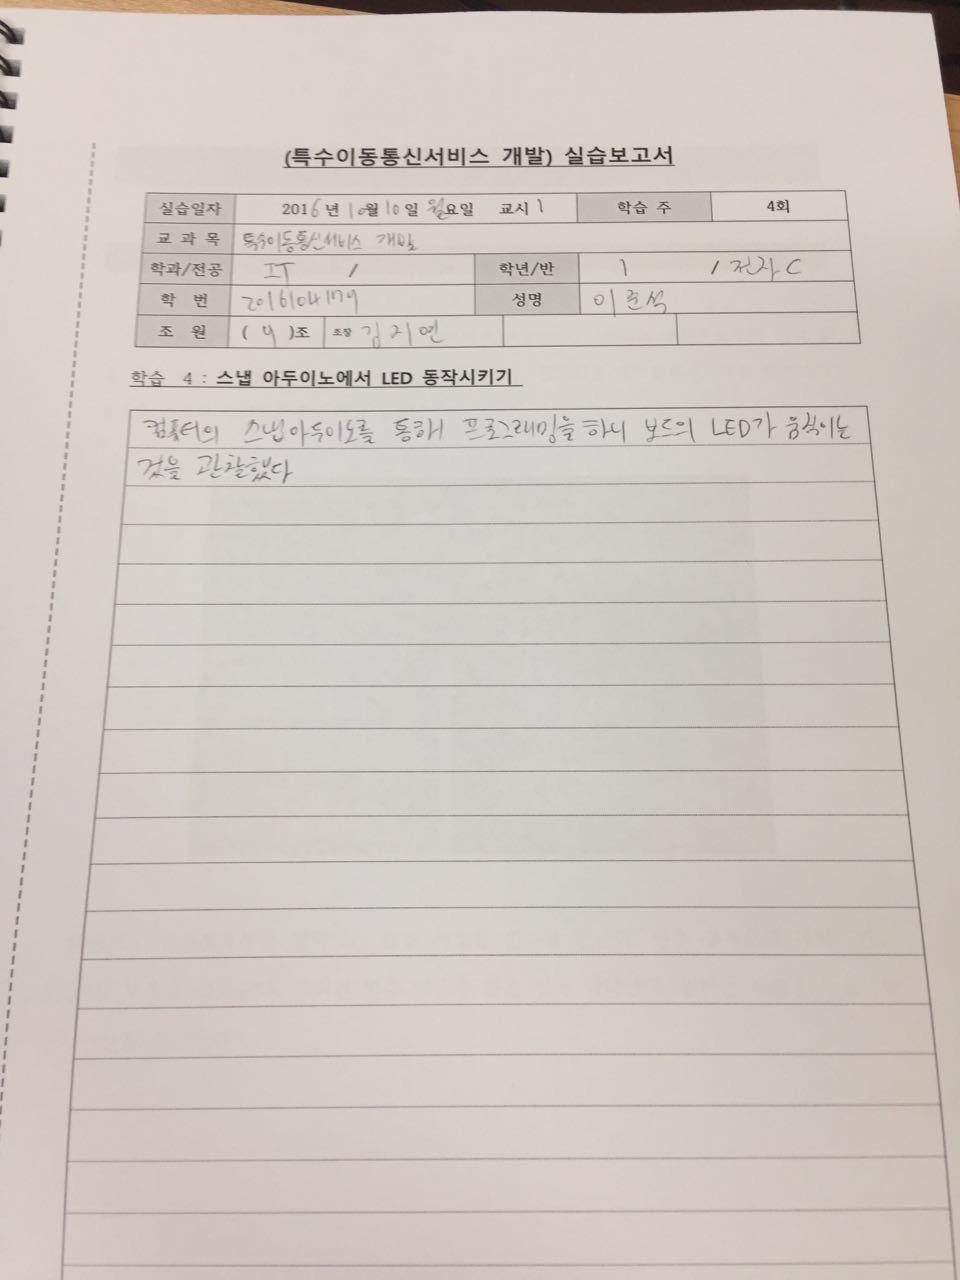 (특수이동통신서비스 개발) 실습보고서
실습일자 2016년 10월 10일 월요일 교시 1 학습 주 4회
교 과 목 특수이동통신서비스 개발
학과/전공 IT / 학년/반 1 / 전자 C
학 번 성명 이준석
조 원 ( 4 )조 조장 김지연
학습 4 : 스냅 아두이노에서 LED 동작시키기
컴퓨터의 스냅아두이노를 통해 프로그래밍을 하니 보드의 LED가 움직이는
것을 관찰했다